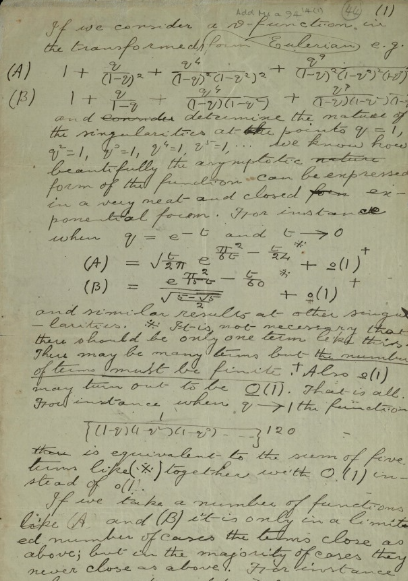 (1)
If we consider a ϑ-function in
the transformed form Eulerian e.g.
(A) 1 + q/(1-q)² + q⁴/(1-q)²(1-q²)² + q⁹/(1-q)²(1-q²)²(1-q³)²
(B) 1 + q/1-q + q⁴/(1-q)(1-q²) + q⁹/(1-q)(1-q²)(1-q³)
and consider determine the nature of
the singularities at the points q = 1,
q² = 1, q³ = 1, q⁴ = 1, q⁵ = 1, ... we know how
beautifully the asymptotic nature
form of the function can be expressed
in a very neat and closed form ex-
ponential form. For instance
when q = e^-t and t → 0
(A) = √(t/2π) e^(π²/6t - t/24) * + o(1) †
(B) = e^(π²/15t - t/60) * / √((5-√5)/2) + o(1) †
and similar results at other singu
-larities. * It is not necessary that
there should be only one term like this.
There may be many terms but the number
of terms must be finite. † Also o(1)
may turn out to be O(1). That is all.
For instance when q → 1 the function
1/{(1-q)(1-q²)(1-q³) ---}120
is equivalent to the sum of five
terms like (*) together with O(1) in-
stead of o(1).
If we take a number of functions
like (A) and (B) it is only in a limit
ed number of cases the terms close as
above; but in the majority of cases they
never close as above. For instance